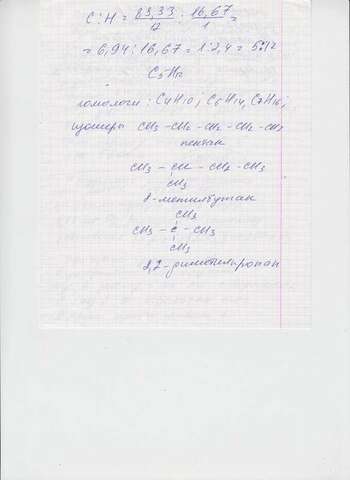 C : H = 83,33/12 : 16,67/1 =
= 6,94 : 16,67 = 1 : 2,4 = 5:12
C5H12
гомологи : C4H10; C6H14, C7H16;
изомеры CH3 - CH2 - CH2 - CH2 - CH3
пентан
CH3 - CH - CH2 - CH3
CH3
2-метилбутан
CH3
CH3 - C - CH3
CH3
2,2-диметилпропан